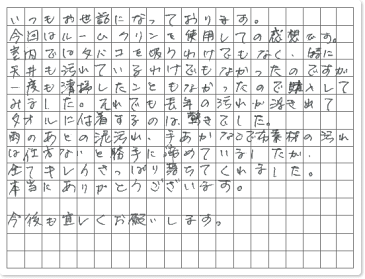 いつもお世話になっております。
今回はルームクリンを使用しての感想です。
室内ではタバコを吸うわけでもなく、特に
天井も汚れているわけでもなかったのですが
一度も清掃したこともなかったので購入して
みました。それでも長年の汚れが浮き出て
タオルに付着するのは、驚きでした。
雨のあとの泥汚れ、手あかなどで布素材の汚れ
は仕方ないと勝手に諦めていましたが、
全てキレイさっぱり落ちてくれました。
本当にありがとうございます。
今後も宜しくお願いします。